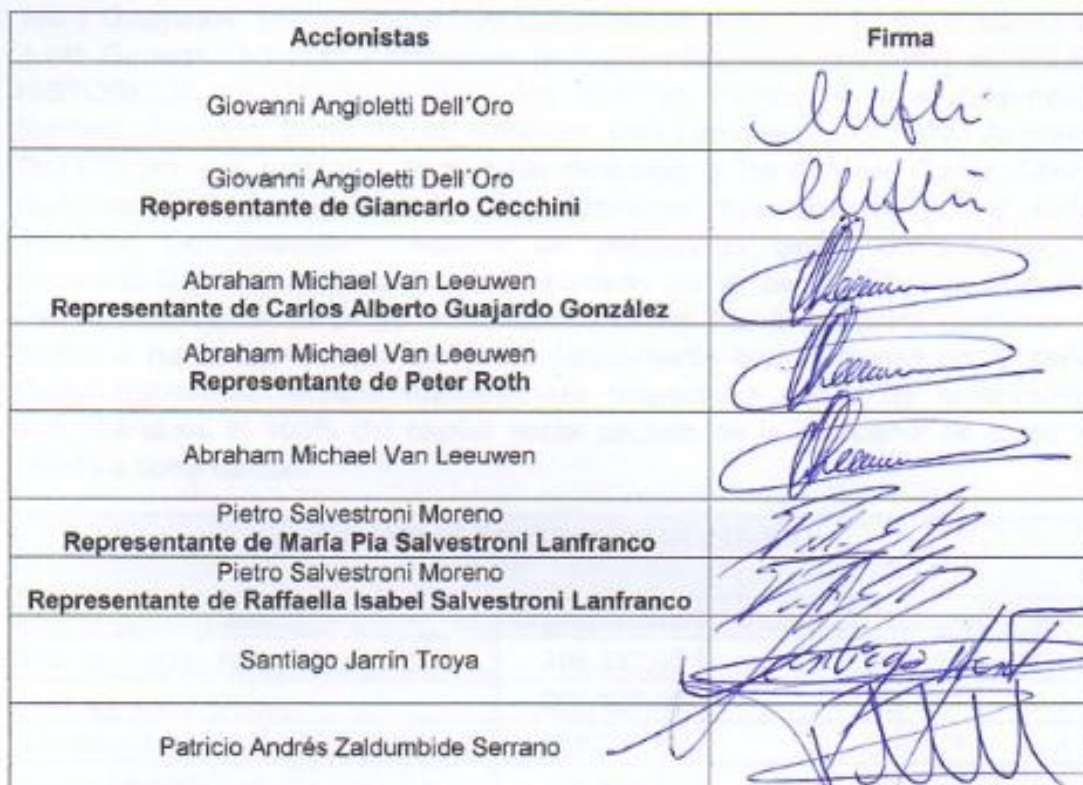 Accionistas Firma
Giovanni Angioletti Dell'Oro
Giovanni Angioletti Dell'Oro
Representante de Giancarlo Cecchini
Abraham Michael Van Leeuwen
Representante de Carlos Alberto Guajardo González
Abraham Michael Van Leeuwen
Representante de Peter Roth
Abraham Michael Van Leeuwen
Pietro Salvestroni Moreno
Representante de María Pia Salvestroni Lanfranco
Pietro Salvestroni Moreno
Representante de Raffaella Isabel Salvestroni Lanfranco
Santiago Jarrín Troya Santiago
Patricio Andrés Zaldumbide Serrano